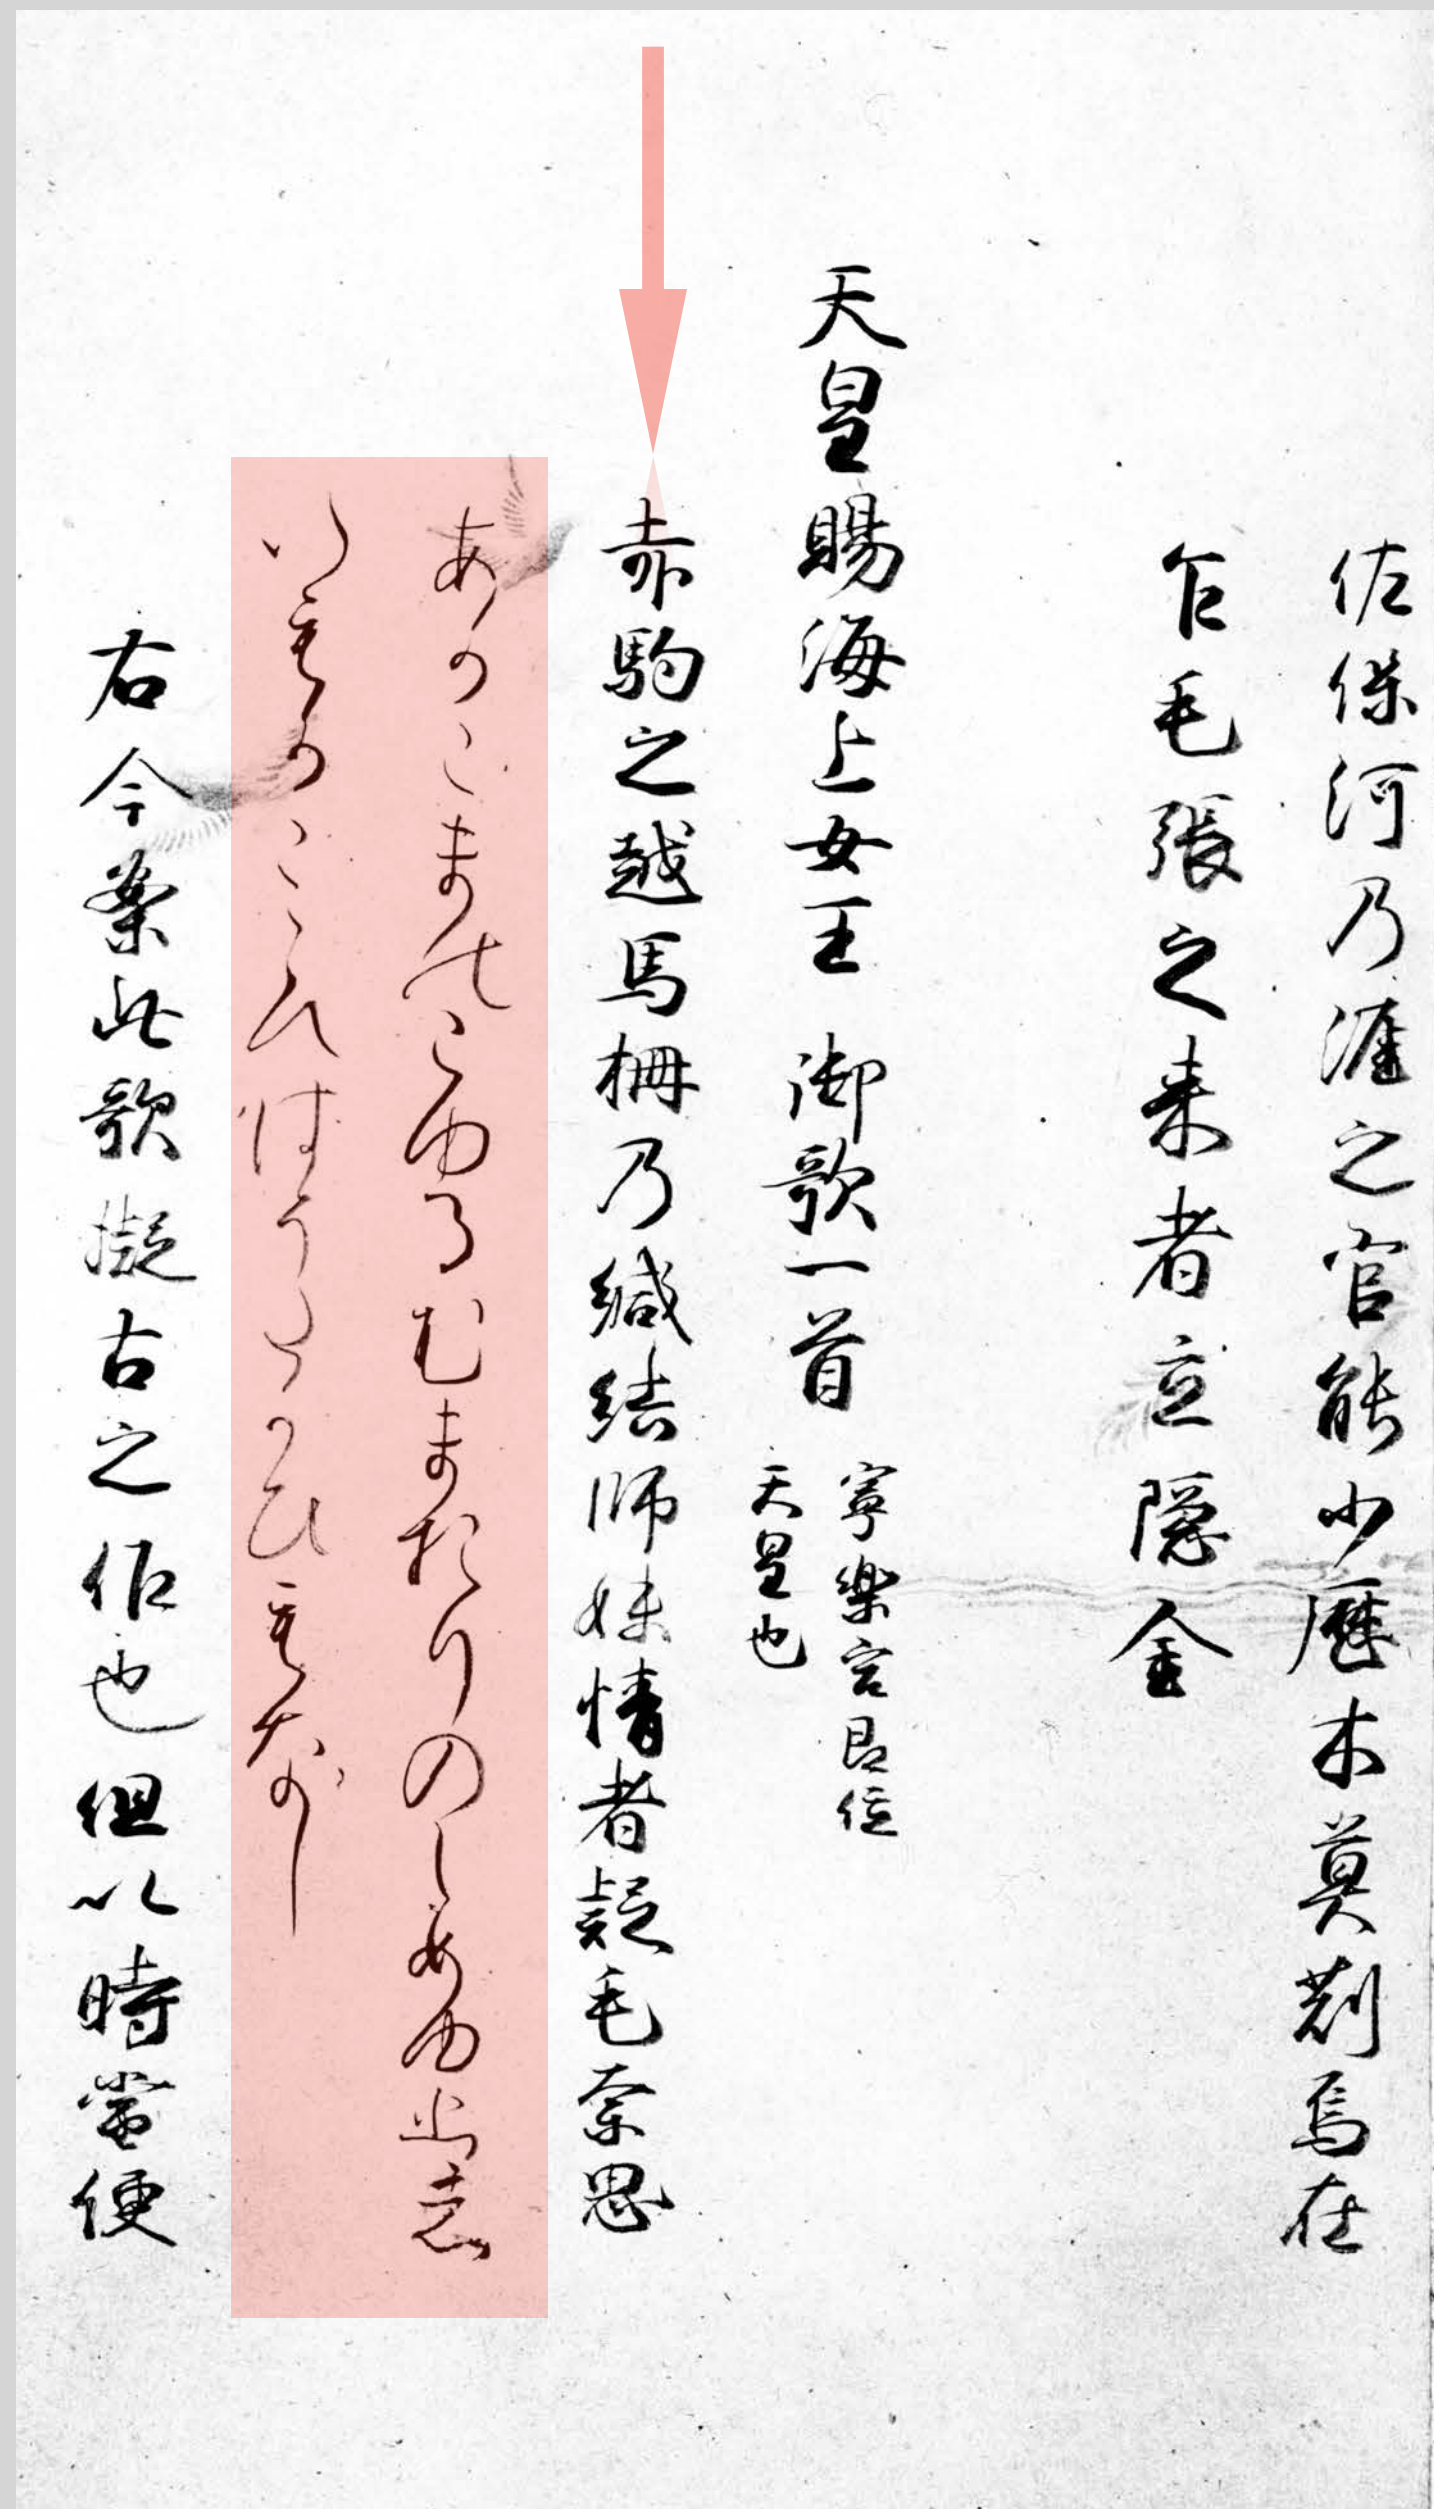 佐保河乃涯之官能少歴木莫苅焉在
乍毛張之来者立隠金
天皇賜海上女王 御歌一首
寧楽宮即位
天皇也
赤駒之越馬柵乃緘結師妹情者疑毛奈思
あかこまのこゆるむまおりのしめゆひし
いもかこゝろはうたかひもなし
右今案此歌擬古之作也但以時當便